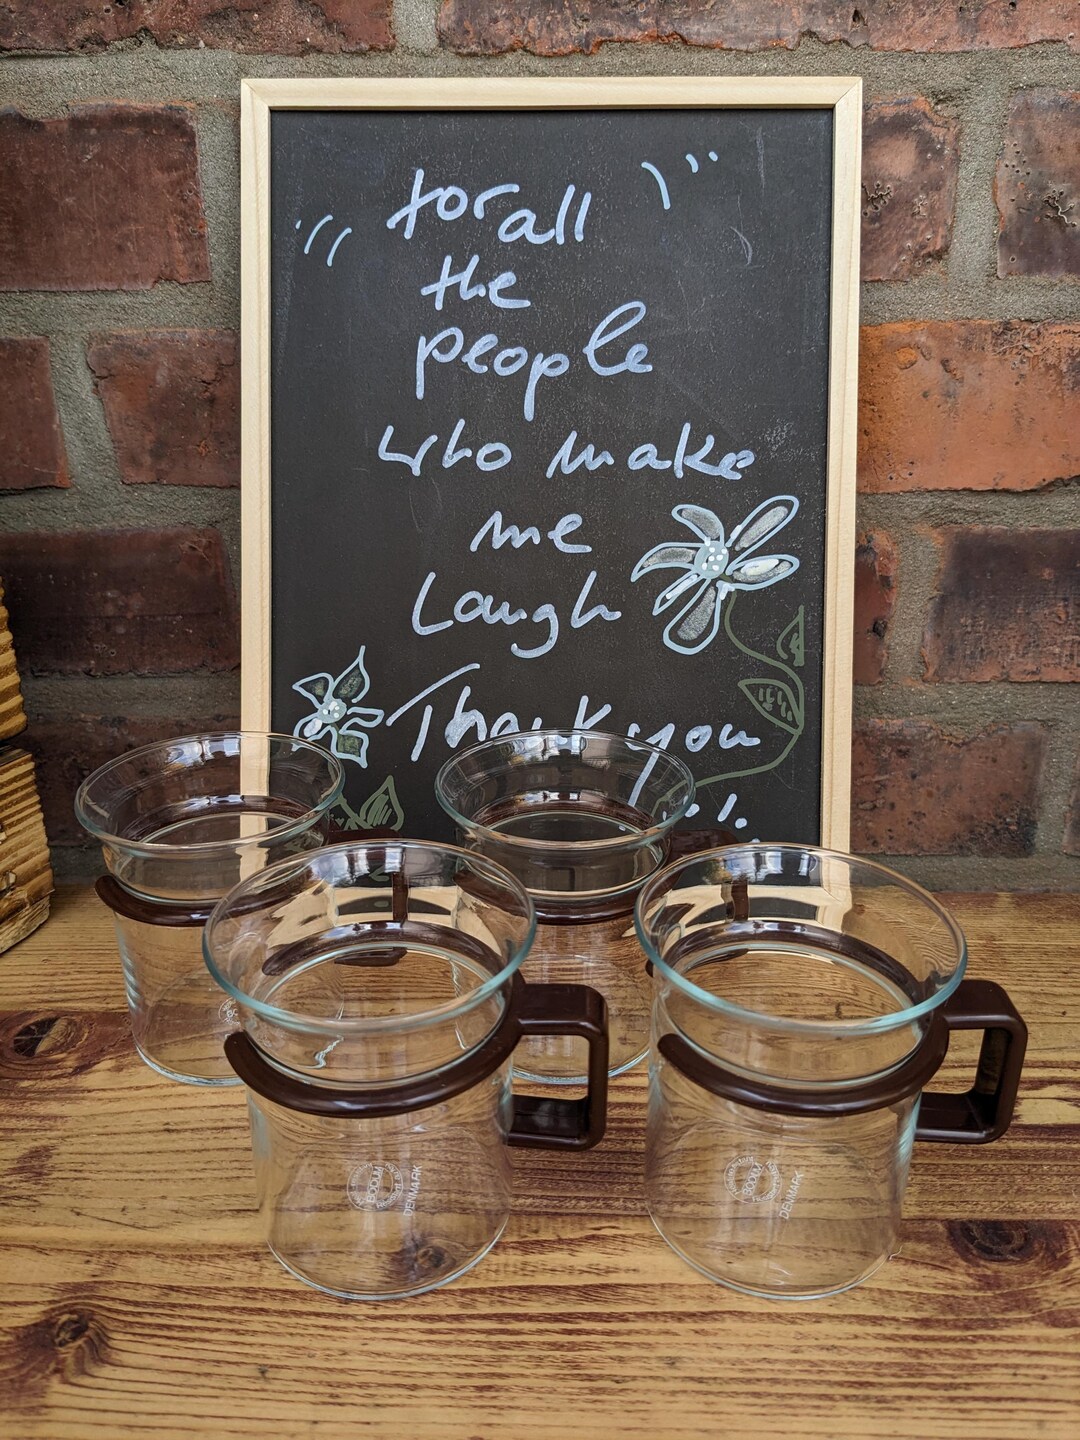 for all
the
people
who make
me
Laugh
Thank you
BODUM
DENMARK
BODUM
DENMARK